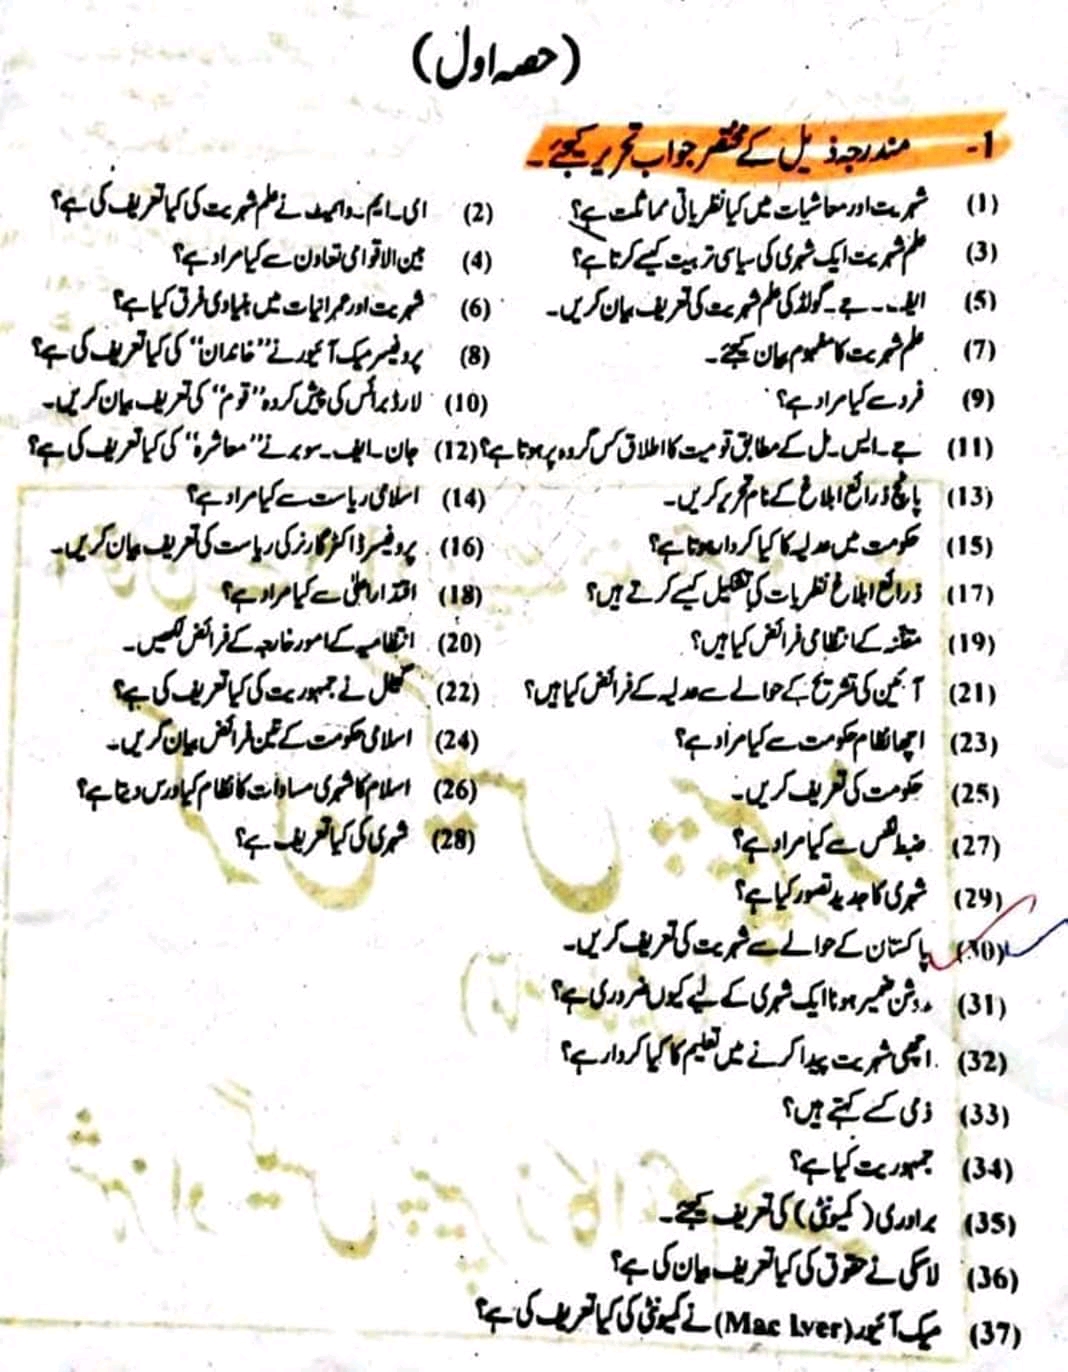 (حصہ اول)
1- مندرجہ ذیل کے مختصر جواب تحریر کیجئے۔
(1) شہریت اور معاشیات میں کیا نظریاتی مماثلت ہے؟ (2) ای۔ ایم۔ وائیٹ نے علم شہریت کی کیا تعریف کی ہے؟
(3) علم شہریت ایک شہری کی سیاسی تربیت کیسے کرتا ہے؟ (4) بین الاقوامی تعاون سے کیا مراد ہے؟
(5) ایف۔ جے۔ گولڈ کی علم شہریت کی تعریف بیان کریں۔ (6) شہریت اور عمرانیات میں بنیادی فرق کیا ہے؟
(7) علم شہریت کا مفہوم بیان کیجئے۔ (8) پروفیسر میک آئیور نے "خاندان" کی کیا تعریف کی ہے؟
(9) فرد سے کیا مراد ہے؟ (10) لارڈ برائس کی پیش کردہ "قوم" کی تعریف بیان کریں۔
(11) جے۔ ایس۔ مل کے مطابق قومیت کا اطلاق کس گروہ پر ہوتا ہے؟ (12) جان۔ ایف۔ سوبر نے "معاشرہ" کی کیا تعریف کی ہے؟
(13) پانچ ذرائع ابلاغ کے نام تحریر کریں۔ (14) اسلامی ریاست سے کیا مراد ہے؟
(15) حکومت میں عدلیہ کا کیا کردار ہوتا ہے؟ (16) پروفیسر ڈاکٹر گارنر کی ریاست کی تعریف بیان کریں۔
(17) ذرائع ابلاغ نظریات کی تشکیل کیسے کرتے ہیں؟ (18) اقتدار اعلیٰ سے کیا مراد ہے؟
(19) مقننہ کے انتظامی فرائض کیا ہیں؟ (20) انتظامیہ کے امور خارجہ کے فرائض لکھیں۔
(21) آئین کی تشریح کے حوالے سے عدلیہ کے فرائض کیا ہیں؟ (22) گیٹل نے جمہوریت کی کیا تعریف کی ہے؟
(23) اچھا نظام حکومت سے کیا مراد ہے؟ (24) اسلامی حکومت کے تین فرائض بیان کریں۔
(25) حکومت کی تعریف کریں۔ (26) اسلام کا شہری مساوات کا نظام کیا درس دیتا ہے؟
(27) ضبط نفس سے کیا مراد ہے؟ (28) شہری کی کیا تعریف ہے؟
(29) شہری کا جدید تصور کیا ہے؟
(30) پاکستان کے حوالے سے شہریت کی تعریف کریں۔
(31) روشن ضمیر ہونا ایک شہری کے لیے کیوں ضروری ہے؟
(32) اچھی شہریت پیدا کرنے میں تعلیم کا کیا کردار ہے؟
(33) ذمی کسے کہتے ہیں؟
(34) جمہوریت کیا ہے؟
(35) برادری (کمیونٹی) کی تعریف کیجئے۔
(36) لاسکی نے حقوق کی کیا تعریف بیان کی ہے؟
(37) میک آئیور (Mac Lver) نے کمیونٹی کی کیا تعریف کی ہے؟